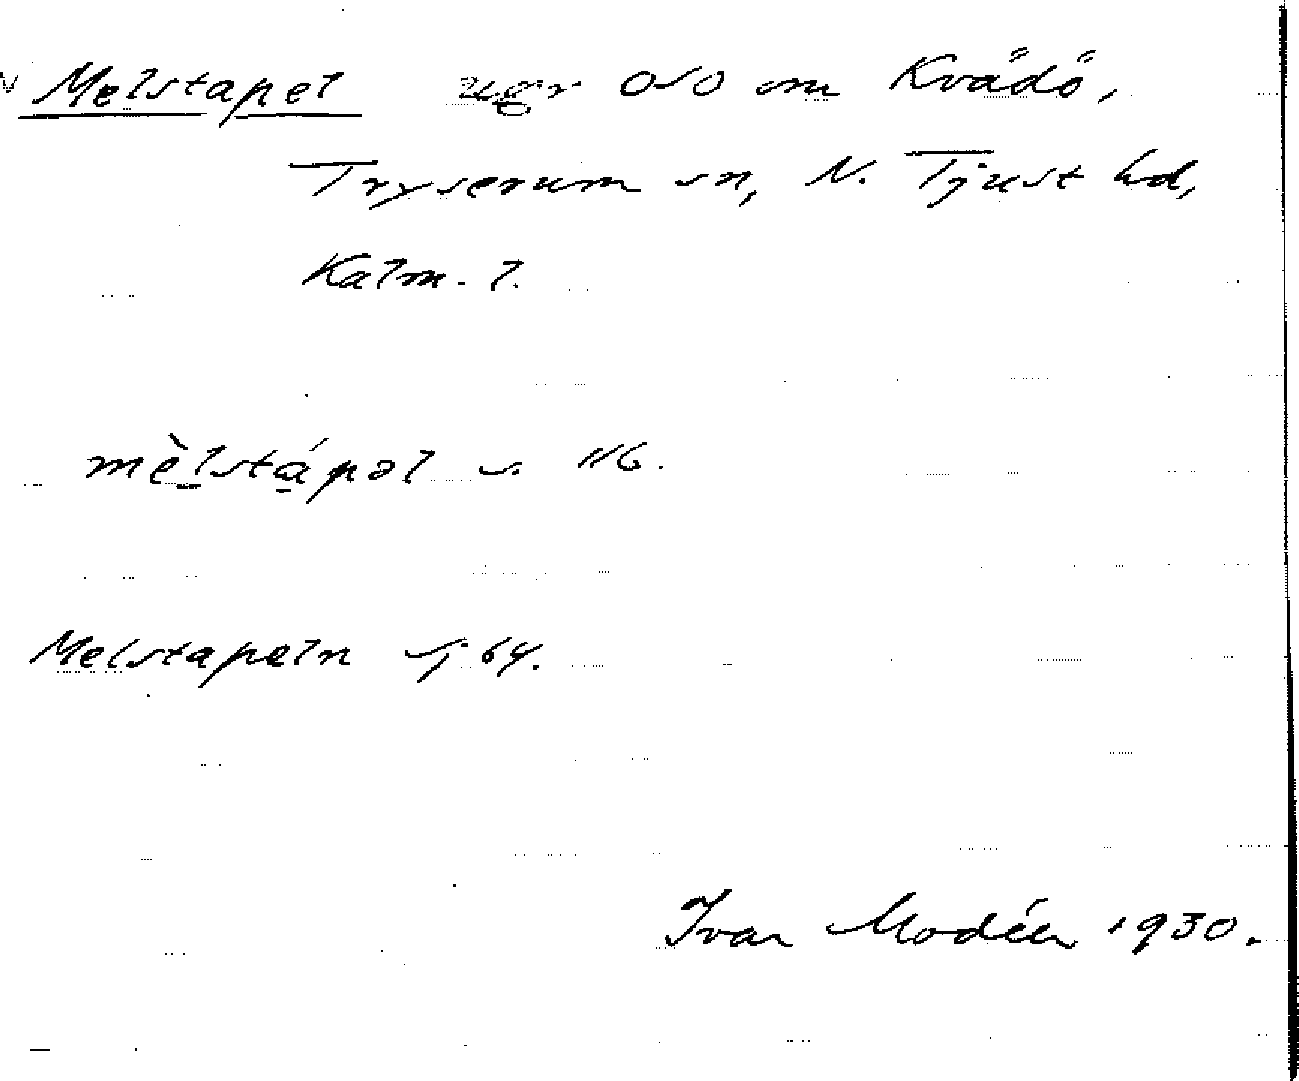 v Melstapel ugr OSO om Kvädö,
Tryserum sn, N. Tjust hd,
Kalm. l.
mèlstápəl s. 116.
Melstapeln sj. 64.
Ivar Modéer 1930.